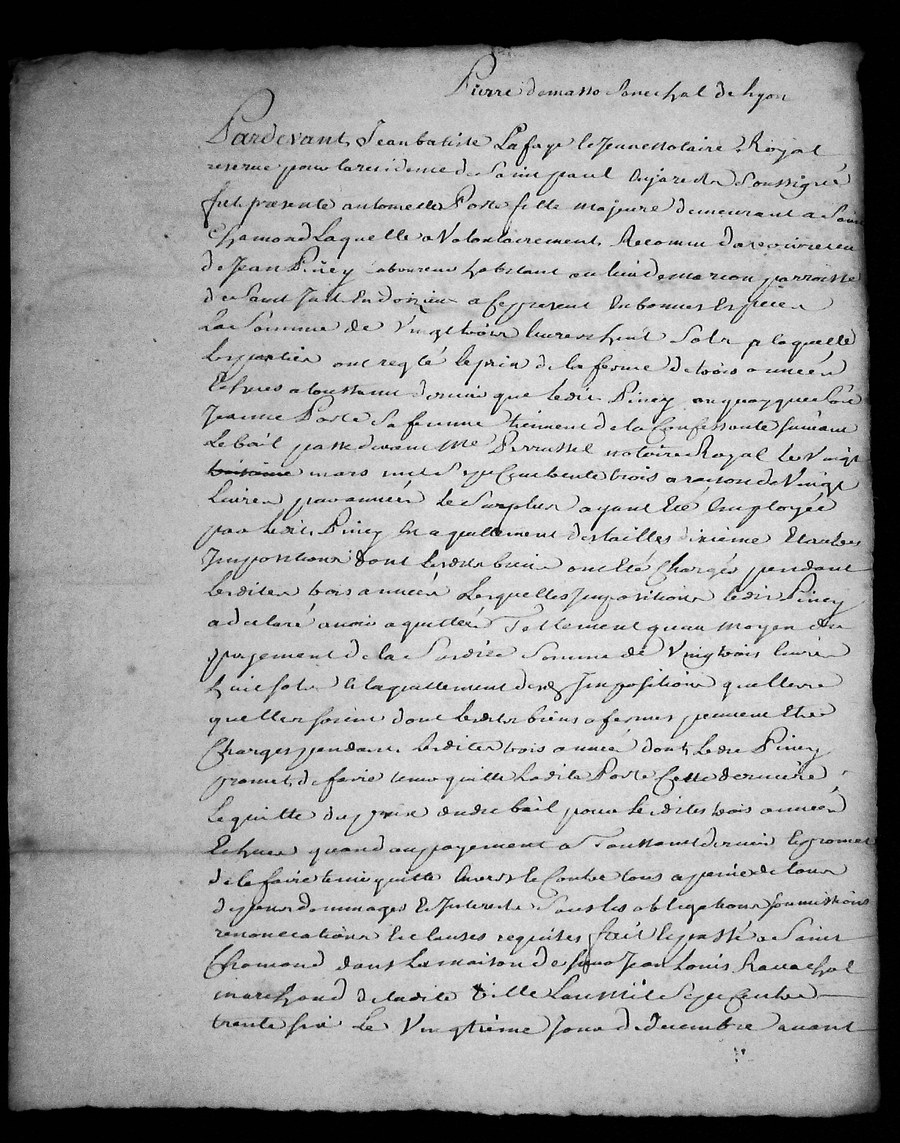 Pierre demasso Senechal de Lyon
Pardevant Jean batiste Lafaye le Jeune Notaire Royal
reserve pour la residence de Saint paul en jarest Soussigné
fut presente antoinette Porte fille majeure demeurant a Saint
Chamond Laquelle a Volontairement Reconnu d'avoir receu
de Jean Piney Laboureur habitant au lieu de parroisse
de Saint Just en doizieu a Ce present En bonnes Especes
La Somme de Vingt trois livres huit Sols p laquelle
Les parties ont reglé le prix de la ferme de trois années
Echues a toussaint dernier que ledit Piney
Jeanne Porte Sa femme tiennent de la Confessante Suivant
Le bail passé devant Me Perrussel notaire Royal le Vingt
mars mil Sept Cent trente trois a raison de Vingt
Livres par année le Surplus ayant Eté Employée
par ledit Piney En aquittement des tailles dixieme Et autres
Impositions dont lesdits biens ont Eté Chargés pendant
Lesdites trois années Lesquelles Impositions ledit Piney
a declaré avoir aquittée Tellement quau moyen du
payement de la Susdite Somme de Vingt trois livres
huit sols Et laquittement desd Impositions quelles
quelles soient dont lesdits biens afermes peuvent Etre
Chargés pendant lesdites trois année dont ledit Piney
promet de faire tenir quitte Ladite Porte Cette derniere
Le quitte du prix dudit bail pour lesdites trois années
Echues quand au payement a Toussaint dernier Et promet
de le faire tenir quitte Envers Et Contre tous a peine de tous
depens dommages Et Interests Sous les obligations soumissions
renonciations Et clauses requises fait Et passé a Saint
Chamond dans la maison de Jean Louis Ravachol
marchand de ladite Ville Lan Mil Sept Cents
trente six Le Vingtième Jour de decembre avant